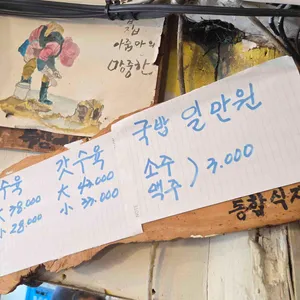 아줌마의
망중한
국밥 일만원
갓수육
大 43.000
小 33.000
수육
大 38.000
小 28.000
소주
맥주 ) 3.000
통합식